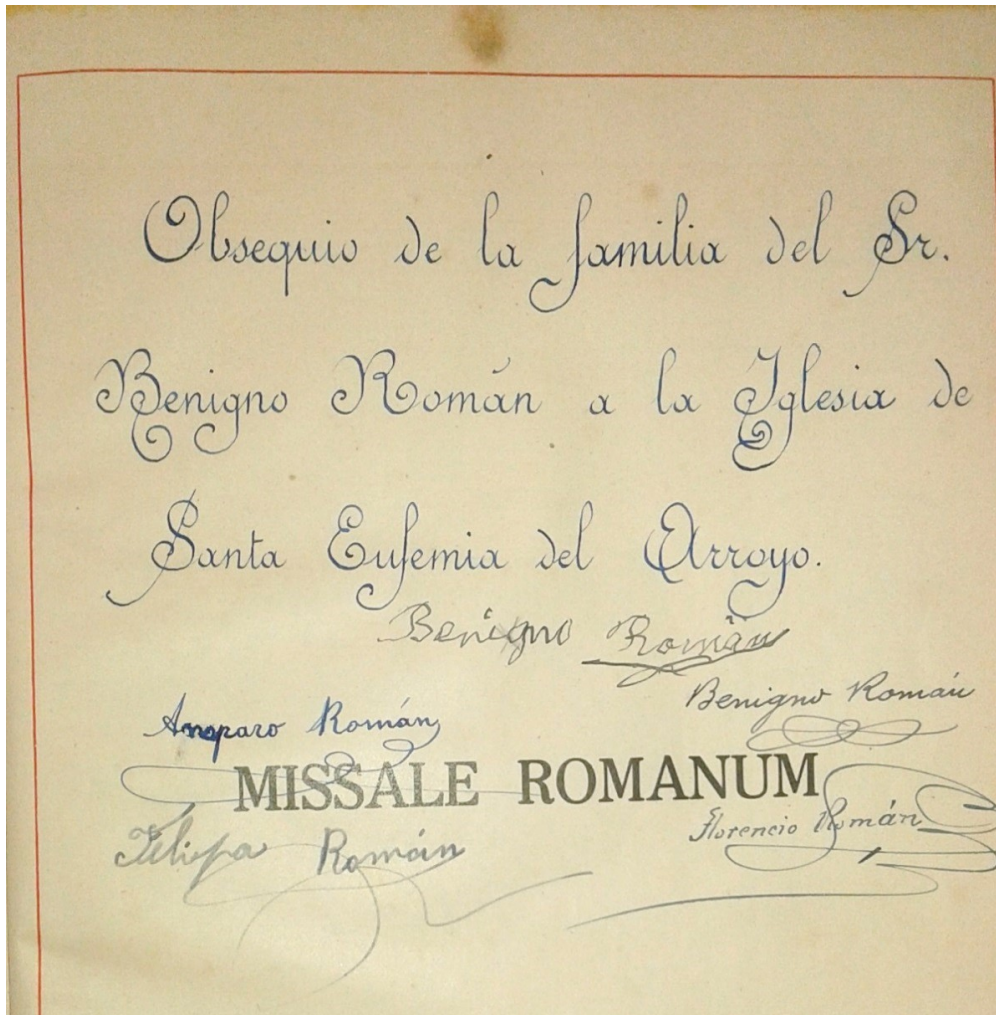 Obsequio de la familia del Sr.
Benigno Román a la Iglesia de
Santa Eufemia del Arroyo.
Benigno Román
Benigno Román
Amparo Román
MISSALE ROMANUM
Felipa Román
Florencio Román